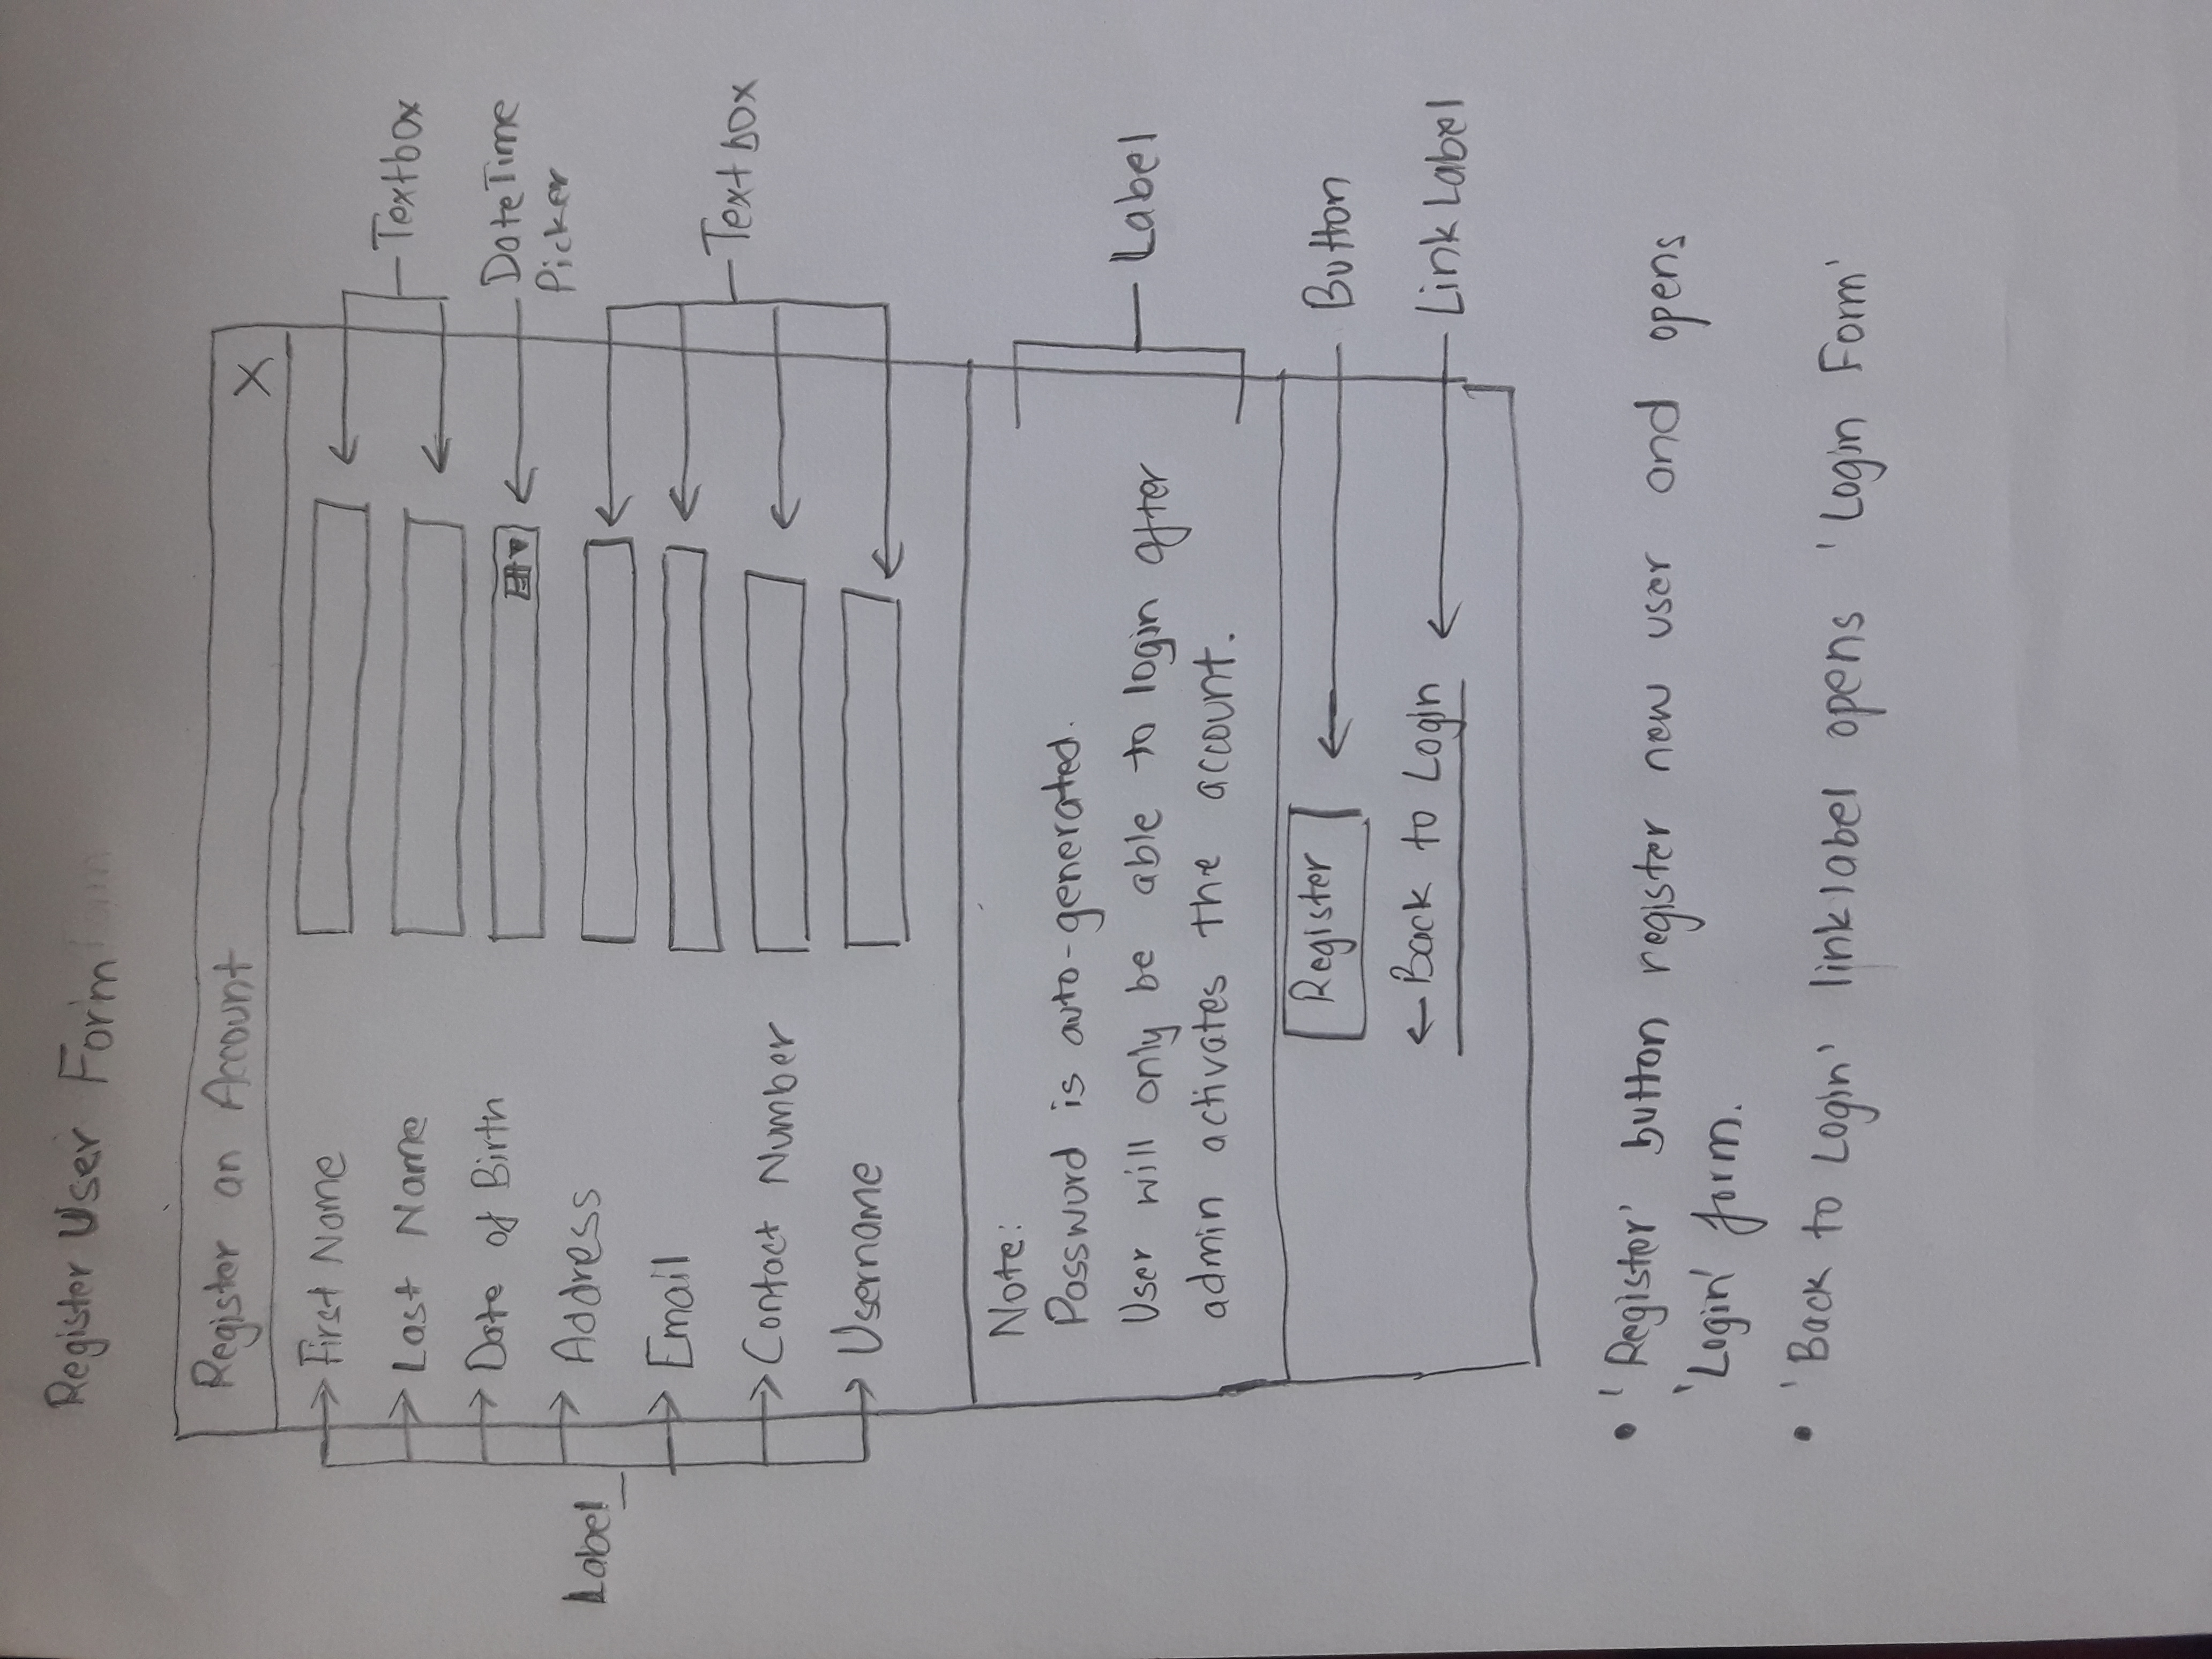 Register User Form
Register an Account X
First Name
Last Name
Textbox
Date of Birth
DateTime
Picker
Address
Label
Email
Textbox
Contact Number
Username
Note:
Password is auto-generated.
User will only be able to login after
Label
admin activates the account.
Register
Button
← Back to Login
LinkLabel
• 'Register' button register new user and opens
'Login' form.
• 'Back to Login' linklabel opens 'Login Form'